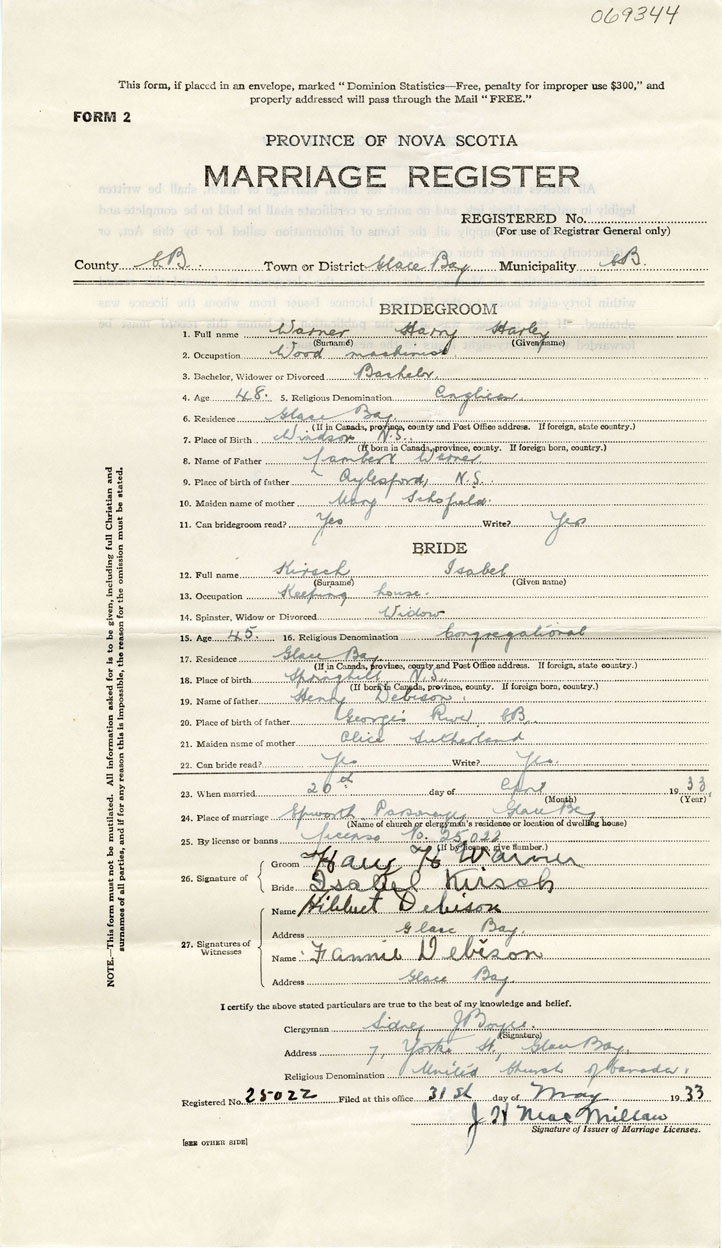 069344
This form, if placed in an envelope, marked "Dominion Statistics—Free, penalty for improper use $300," and
properly addressed will pass through the Mail "FREE."
FORM 2
PROVINCE OF NOVA SCOTIA
MARRIAGE REGISTER
REGISTERED No.
(For use of Registrar General only)
County C.B. Town or District Glace Bay Municipality C.B.
BRIDEGROOM
1. Full name Warner Harry Harley
(Surname) (Given name)
2. Occupation Wood machinist
3. Bachelor, Widower or Divorced Bachelor.
4. Age 48. 5. Religious Denomination Anglican.
6. Residence Glace Bay
(If in Canada, province, county and Post Office address. If foreign, state country.)
7. Place of Birth Windsor N.S.
(If born in Canada, province, county. If foreign born, country.)
8. Name of Father Lambert Warner
9. Place of birth of father Aylesford, N.S.
10. Maiden name of mother Mary Schofield
11. Can bridegroom read? Yes Write? Yes
BRIDE
12. Full name Kirsch Isabel
(Surname) (Given name)
13. Occupation Keeping house.
14. Spinster, Widow or Divorced Widow
15. Age 45. 16. Religious Denomination Congregational
17. Residence Glace Bay
(If in Canada, province, county and Post Office address. If foreign, state country.)
18. Place of birth Springhill N.S.
(If born in Canada, province, county. If foreign born, country.)
19. Name of father Henry Debison.
20. Place of birth of father Georges River, C.B.
21. Maiden name of mother Alice Sutherland
22. Can bride read? Yes Write? Yes.
23. When married 20th day of April 1933
(Month) (Year)
24. Place of marriage Epworth Parsonage, Glace Bay
(Name of church or clergyman's residence or location of dwelling house)
25. By license or banns License No. 25022
(If by licence, give number.)
26. Signature of
Groom Harry H Warner
Bride Isabel Kirsch
27. Signatures of Witnesses
Name Debison
Address Glace Bay.
Name Fannie Debison
Address Glace Bay
I certify the above stated particulars are true to the best of my knowledge and belief.
Clergyman Sidney J Boyce.
(Signature)
Address 7, York St., Glace Bay.
Religious Denomination United Church of Canada.
Registered No. 25022 Filed at this office 31st day of May 1933
J H MacMillan
Signature of Issuer of Marriage Licenses.
[SEE OTHER SIDE]
NOTE.—This form must not be mutilated. All information asked for is to be given, including full Christian and
surnames of all parties, and if for any reason this is impossible, the reason for the omission must be stated.